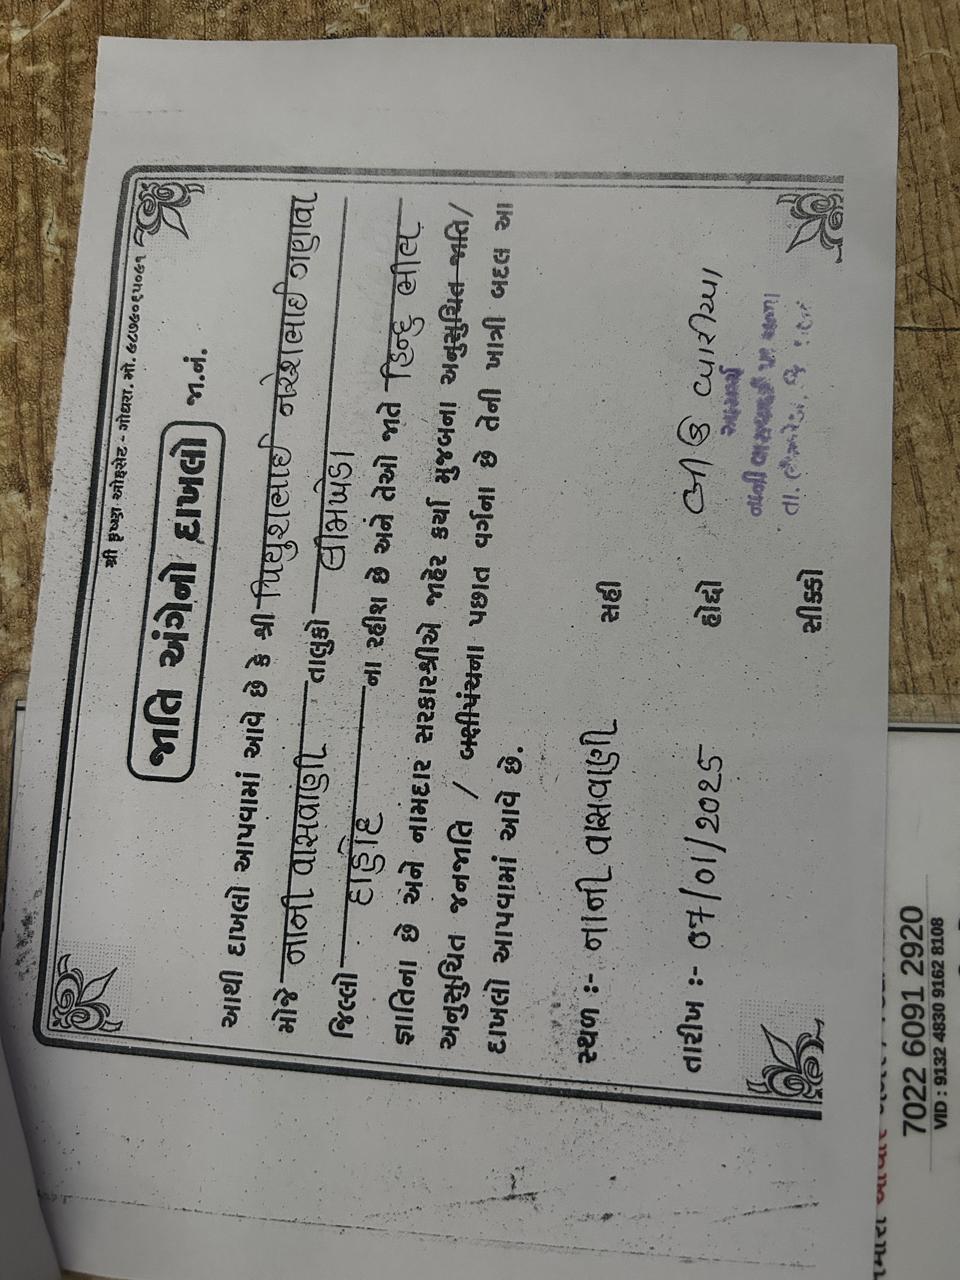 શ્રી કૃષ્ણા ઓફસેટ - ગોધરા. મો. ૯૮૭૯૦૬૫૦૭૧
જાતિ અંગેનો દાખલો
જા.નં.
આથી દાખલો આપવામાં આવે છે કે શ્રી પિયુશભાઈ નરેશભાઈ ગણાવા
મોજે નાની વાસવાણી તાલુકો લીમખેડા
જિલ્લો દાહોદ ના રહીશ છે અને તેઓ જાતે હિન્દુ ભીલ
જ્ઞાતિના છે અને નામદાર સરકારશ્રીએ જાહેર કર્યા મુજબના અનુસુચિત જાતિ/
અનુસુચિત જનજાતિ / બક્ષીપંચના પછાત વર્ગના છે તેની ખાત્રી બદલ આ
દાખલો આપવામાં આવે છે.
સ્થળ :- નાની વાસવાણી
સહી
તારીખ :- ૦૭/૦૧/૨૦૨૫
હોદ્દો
સીક્કો
આચાર્ય
7022 6091 2920
VID : 9132 4830 9162 8108